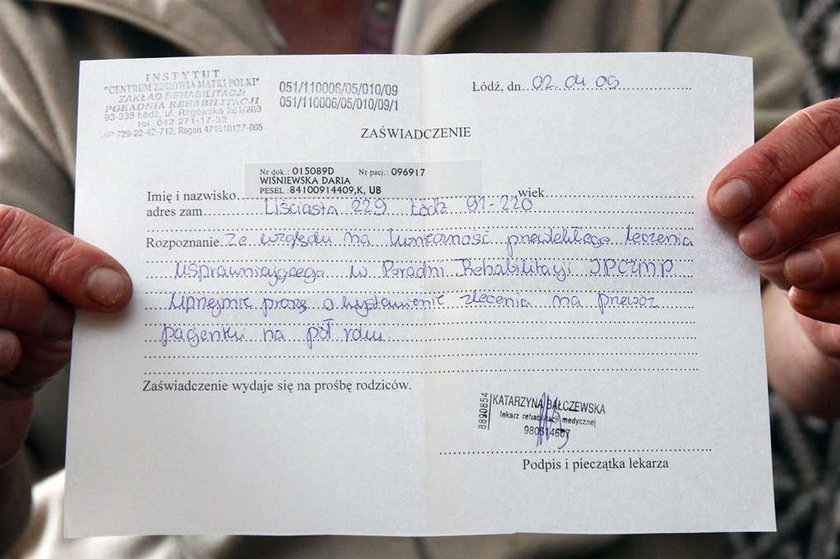 INSTYTUT
"CENTRUM ZDROWIA MATKI POLKI"
ZAKŁAD REHABILITACJI
PORADNIA REHABILITACJI
93-338 Łódź, ul. Rzgowska 281/289
tel. 042 271-17-32
NIP 729-22-42-712, Regon 471610127-005
051/110006/05/010/09
051/110006/05/010/09/1
Łódź, dn. 02.04.09
ZAŚWIADCZENIE
Nr dok.: 015089D Nr pacj.: 096917
WIŚNIEWSKA DARIA
PESEL :84100914409,K, UB
Imię i nazwisko wiek
adres zam Liściasta 229 Łódź 91-220
Rozpoznanie. Ze względu na konieczność przewlekłego leczenia
usprawniającego w Poradni Rehabilitacji IPCZMP
uprzejmie proszę o wystawienie zlecenia na przewóz
pacjentki na pół roku
Zaświadczenie wydaje się na prośbę rodziców.
8890854
KATARZYNA BAŁCZEWSKA
lekarz rehabilitacji medycznej
Podpis i pieczątka lekarza